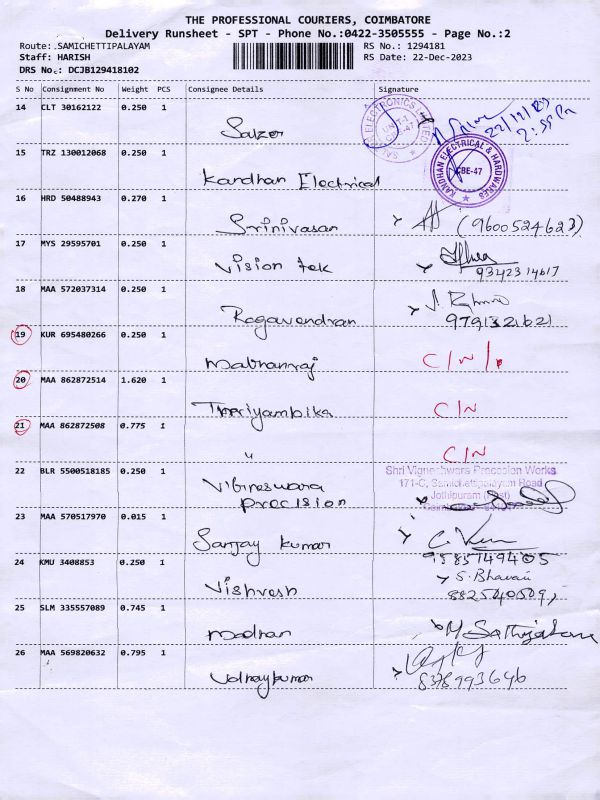 THE PROFESSIONAL COURIERS, COIMBATORE
Delivery Runsheet - SPT - Phone No.:0422-3505555 - Page No.:2
Route: SAMICHETTIPALAYAM RS No.: 1294181
Staff: HARISH RS Date: 22-Dec-2023
DRS No.: DCJB129418102
S No Consignment No Weight PCS Consignee Details Signature
14 CLT 30162122 0.250 1
Salzer
22/12/23
15 TRZ 130012068 0.250 1
Kandhan Electrical
KANDHAN ELECTRICAL & HARDWARES CBE-47
16 HRD 50488943 0.270 1
Srinivasan (9600524623)
17 MYS 29595701 0.250 1
Vision tek
9342314617
18 MAA 572037314 0.250 1
Ragavendran
9791321621
19 KUR 695480266 0.250 1
C/N
20 MAA 862872514 1.620 1
C/N
21 MAA 862872508 0.775 1
" C/N
22 BLR 5500518185 0.250 1
Shri Vigneshwara Precesion Works
171-C, Samichettipalayam Road
Jothipuram (Post)
precision
23 MAA 570517970 0.015 1
Sanjay kumar
9585749405
24 KMU 3408853 0.250 1
Vishvesh S. Bhavani
25 SLM 335557089 0.745 1
Madhan
26 MAA 569820632 0.795 1
Udhaykumar
8378993646